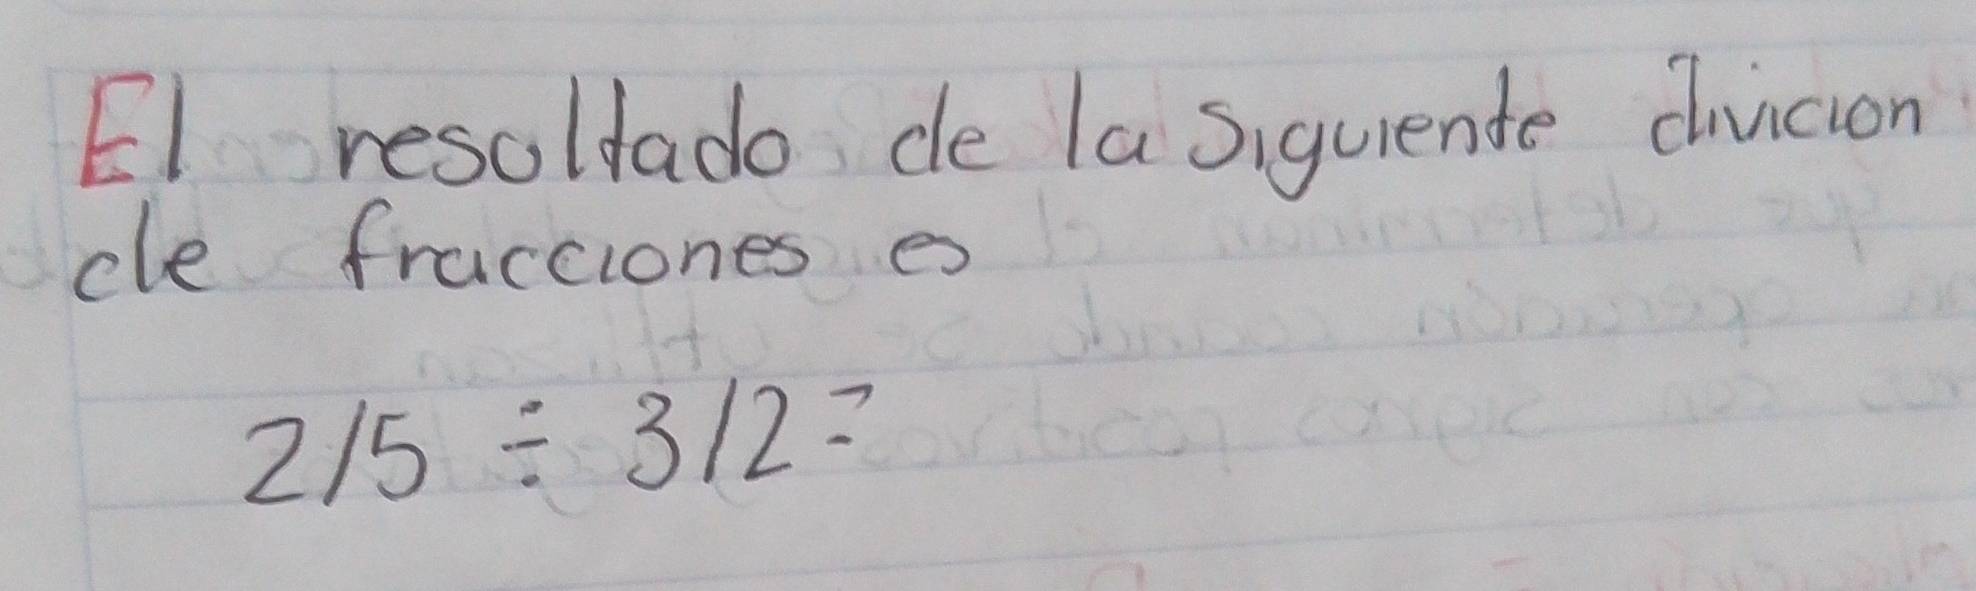 El resoltado de la siguiente divicion
de fracciones es
2/5 ÷ 3/2 =